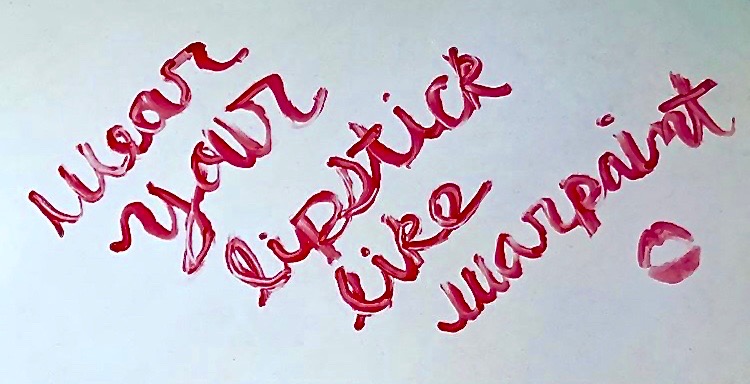 wear
your
lipstick
like
warpaint